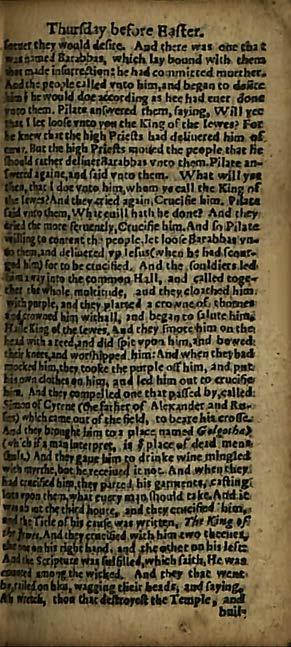 Thursday before Easter.
they would desire. And there was one that
was named Barabbas, which lay bound with them
that made insurrection: he had committed murther.
And the people called vnto him, and began to desire
him ẏ he would doe according as hee had euer done
vnto them. Pilate answered them, saying, Will yee
that I let loose vnto you the King of the Iewes? For
he knew that the high Priests had deliuered him of
enuy. But the high Priests moued the people that he
should rather deliuer Barabbas vnto them. Pilate an-
swered againe, and said vnto them. What will you
then, that I doe vnto him, whom ye call the King of
the Iewes? And they cried again, Crucifie him. Pilate
said vnto them, What euill hath he done? And they
cried the more feruently, Crucifie him. And so Pilate
willing to content the people, let loose Barabbas vn-
to them, and deliuered vp Iesus (when he had scour-
ged him) for to be crucified. And the souldiers led
him away into the common Hall, and called toge-
ther the whole multitude, and they cloathed him
with purple, and they platted a crowne of thornes
and crowned him withall, and began to salute him,
Haile King of the Iewes. And they smote him on the
head with a reed, and did spit vpon him, and bowed
their knees, and worshipped him: And when they had
mocked him, they tooke the purple off him, and put
his own clothes on him, and led him out to crucifie
him. And they compelled one that passed by, called
Simon of Cyrene (the father of Alexander and Ru-
fus) which came out of the field, to beare his crosse.
And they brought him to a place named Golgotha,
(which if a man interpret, is ẏ place of dead mens
skuls.) And they gaue him to drinke wine mingled
with myrrhe, but he receiued it not. And when they
had crucified him, they parted his garments, casting
lots vpon them, what euery man should take. And it
was about the third houre, and they crucified him,
and the Title of his cause was written, The King of
the Iewes. And they crucified with him two theeues,
the one on his right hand, and the other on his left:
And the Scripture was fulfilled, which saith, He was
counted among the wicked. And they that went
by, railed on him, wagging their heads, and saying,
Ah wretch, thou that destroyest the Temple, and